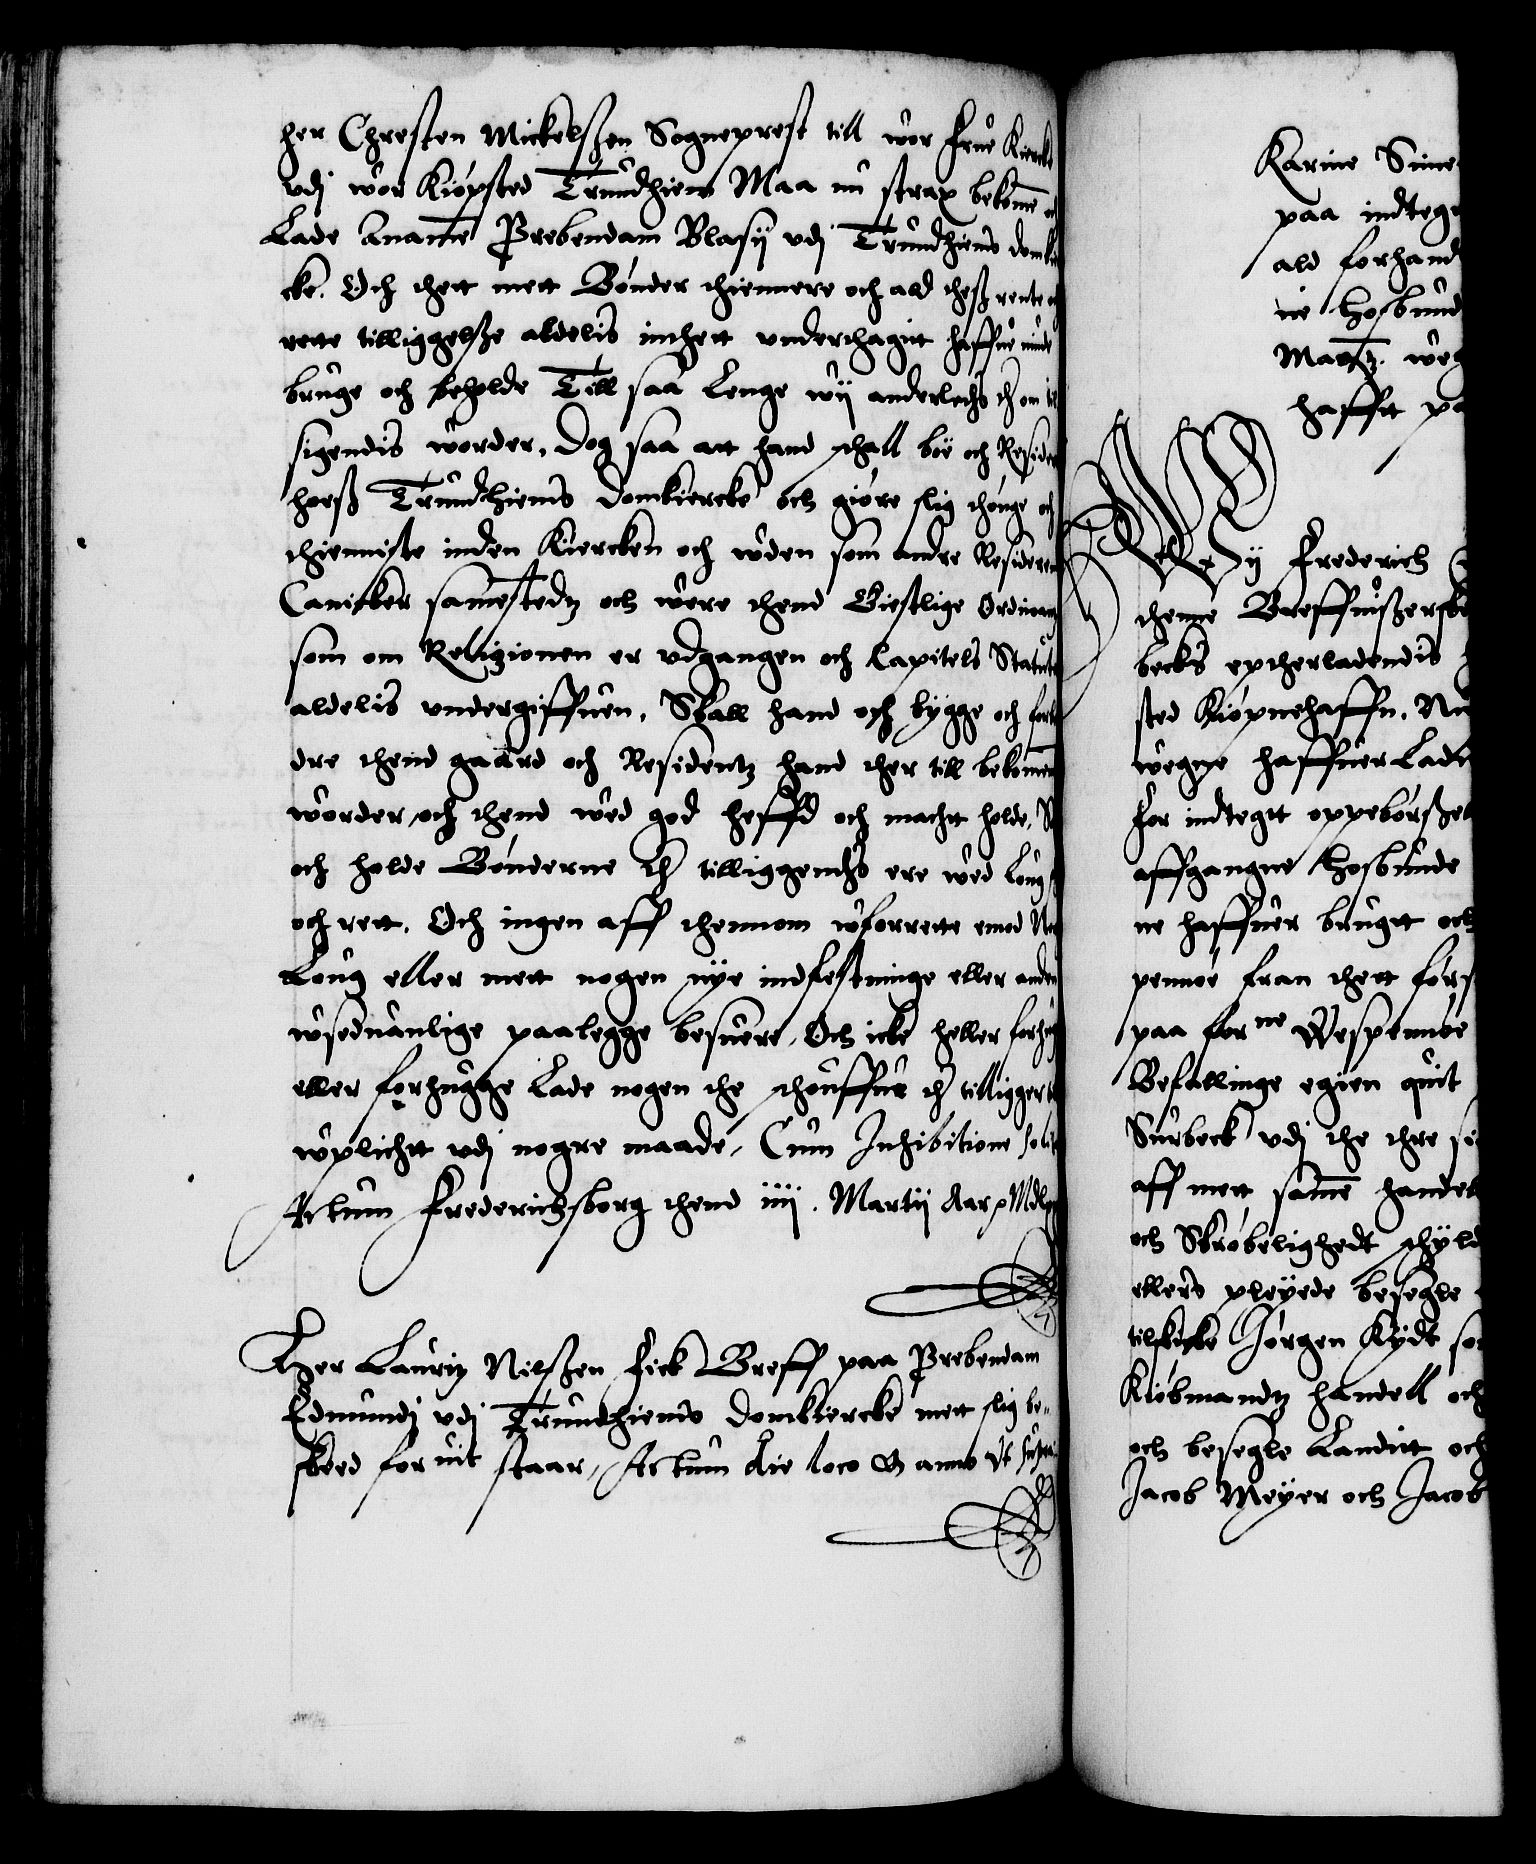 her Chresten Mickelßen Sogneprest till wor frue Kircke
vdj wor Kiøpsted Trundhiem Maa nu strax bekomme
Lade Anamme Prebendam Blasij vdj Trundhiems domkir
cke. Och thett mett Bønder thiennere och ald theß rente
rette tilliggelße aldelis inthett underthagitt haffue
bruge och beholde Till saa Lenge wij anderledis ther om til
sigendis worder, Dog saa att hand schall boe och Reside
hoeß Trundhiems domkiercke och giøre slig thonge och
thienniste inden Kiercken och uden som andre Resideren
Canicker sammestedtz och were thend Giestlige Ordinantz
som om Religionen er udgangen och Capitels Statute
aldelis undergiffuen. Skall hand och bygge och forbe
dre thend gaard och Residentz hand ther till bekommen
worder, och thend wed god heffd och macht holde,
och holde Bønderne ther tilliggendis ere wed Loug
och rett. Och ingen aff thennom wforrette emod
Loug eller mett nogen nye indfestninge eller anden
wseduanlige paalegge besuere, Och icke heller forhugge
eller forhugge Lade nogen the schouffue ther tilligger
wplichtt vdj nogre maade, Cum Inhibitione solita
Actum Frederichsborg thend iiij. Martij Aar
Her Lauritz Nilßen Fick Breff paa Prebendam
Edmundj vdj Trundhiems domkiercke mett slig be-
skeed foruit staar, Actum die loco & anno vt supra
Karine Sime
paa indtege
ald forhand
ne Hosbund
Mattz. weg
hafft pa
Wij Frederich
thenne Breffuißerske
becks epterladendis
sted Kiøpnehaffn. Nu
wegne haffuer Lade
for indtegtt oppebørßel
affgangne Hosbunde
ne haffuer brugtt och
pennøe fran thett førs
paa forne Wespennøe
Befallinge egien quit
Surbeck vdj the thre
aff mett samme handel
och Skrøbelighedt schyld
ellers pleyede besegle
tilskicke Jørgen Kydt som
Kiøbmandtz handell och
och besegle Landitt och
Jacob Meyer och Jacob